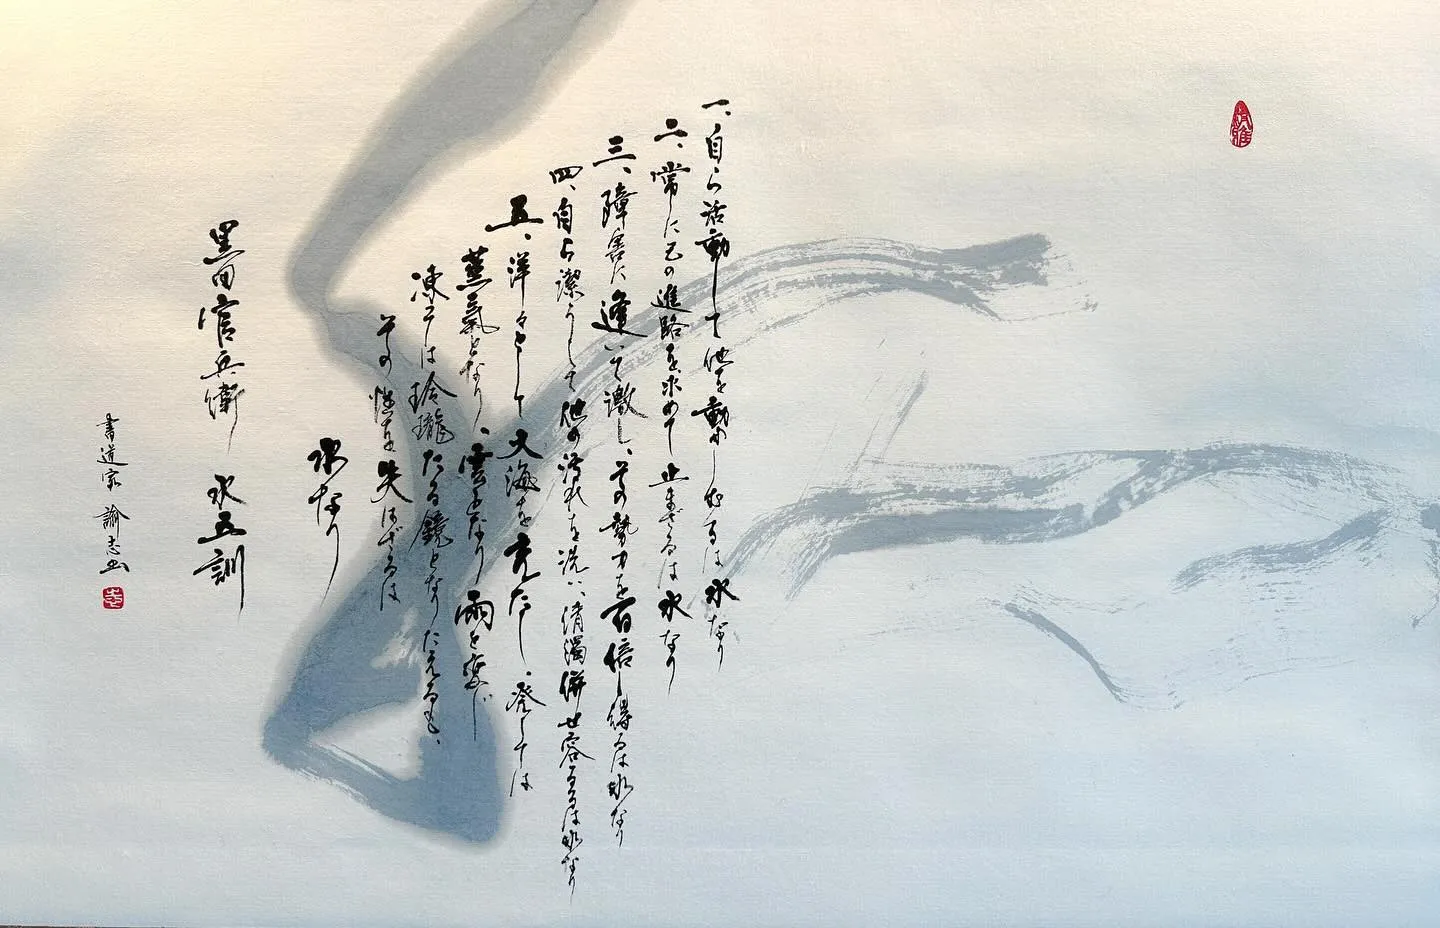 一、自ら活動して他を動かしむるは水なり
二、常に己の進路を求めて止まざるは水なり
三、障害に逢いて激し、その勢力を百倍し得るは水なり
四、自ら潔うして他の汚れを洗い、清濁併せ容るるは水なり
五、洋々として大海を充たし、発しては
蒸気となり、雲となり雨と変じ
凍りては玲瓏たる鏡となりたえるも、
その性を失はざるは
水なり
黒田官兵衛 水五訓
書道家 諭志書